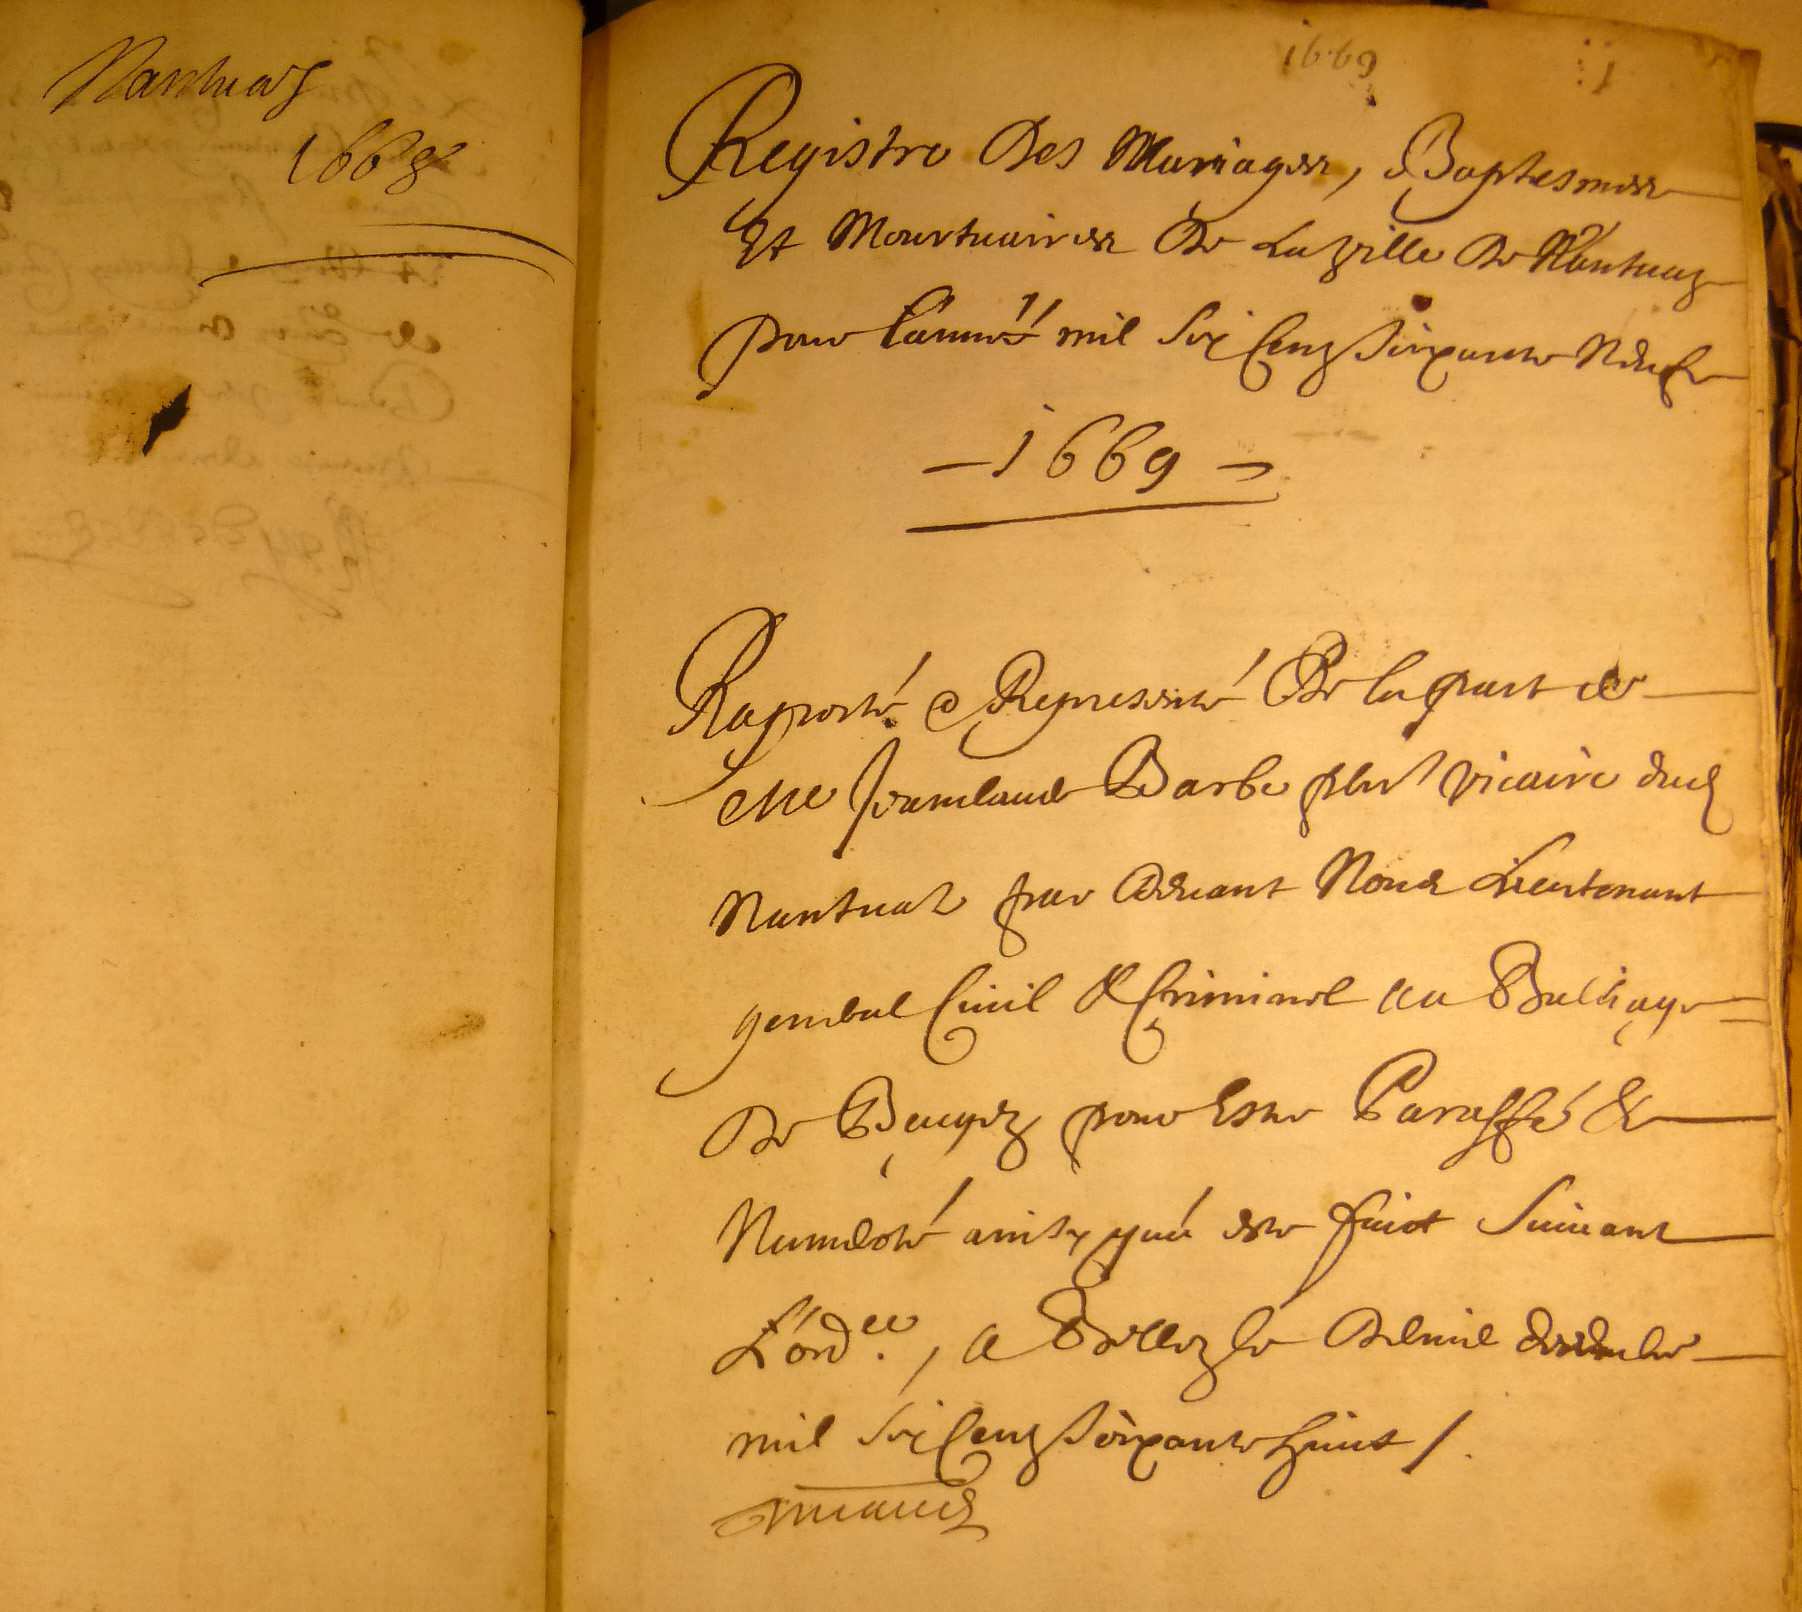 Nantuas
1668
1669
Registre Des Mariages, Baptesmes
Et Mourtuaires De La ville De Nantuaz
pour L'année mil Six Cenz Soixante Neufe
1669
Raporté & Representé De la part de
Me Barbe pbre vicaire dud
Nantuaz par devant Nous Lieutenant
general Civil & Criminel au Balliage
De Beugez pour Estre Paraffé &
Numeroté ainsy que este faict Suivant
L'ordce, a Belley le
mil Six Cenz Soixante huict /.